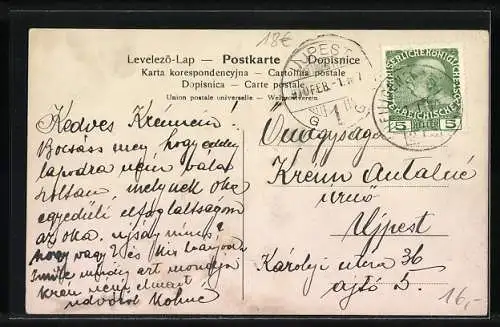 18€
Levelező-Lap — Postkarte — Dopisnice
Karta korespondencyjna — Cartolina postale
Dopisnica — Carte postale
Union postale universelle — Weltpostverein
KAISERLICHE KÖNIGLICHE
ÖSTERREICHISCHE POST
5 HELLER 5
UJPEST
910 FEB
Kedves
Bocsáss meg hogy eddig
lapodra nem vála
szoltam, melynek oka
egyedüli elfoglaltságom
az oka. ujság nincs?
hogy vagy? és
mindig azt mondja
néni elmart
üdvözöl
Önagysága
Krenn Antalné
úrnő
Ujpest
Károlyi utca 36
ajtó 5.
16,-